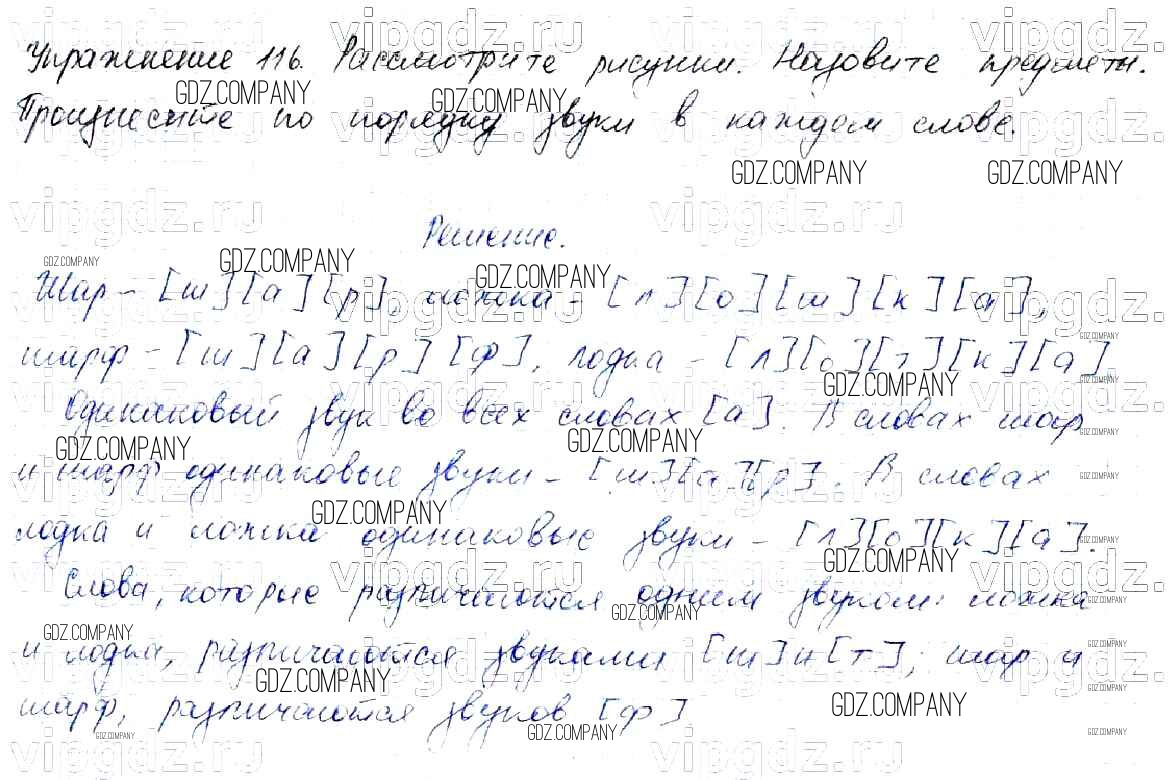 Упражнение 116. Рассмотрите рисунки. Назовите предметы.
Произнесите по порядку звуки в каждом слове.
Решение.
Шар - [ш][а][р], ложка - [л][о][ш][к][а],
шарф - [ш][а][р][ф], лодка - [л][о][т][к][а].
Одинаковый звук во всех словах [а]. В словах шар
и шарф одинаковые звуки - [ш][а][р]. В словах
лодка и ложка одинаковые звуки - [л][о][к][а].
Слова, которые различаются одним звуком: ложка
и лодка, различаются звуками [ш] и [т], шар и
шарф, различаются звуков [ф]
vipgdz.ru
GDZ.COMPANY